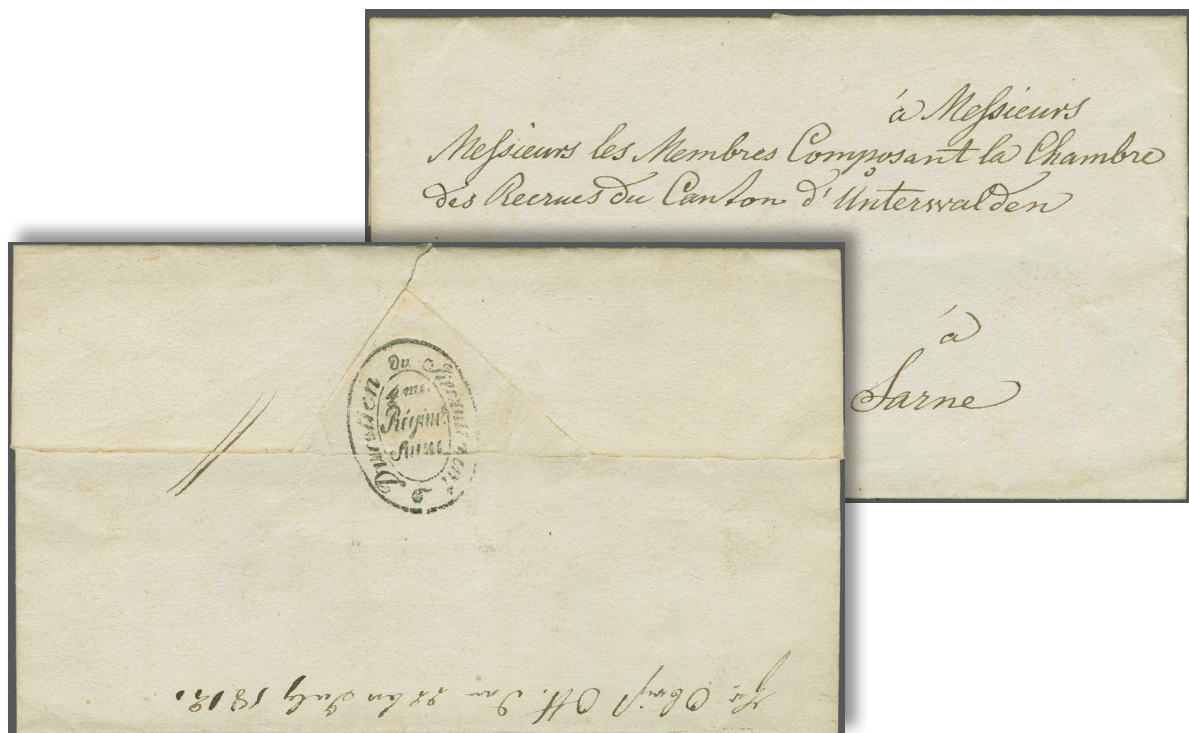 à Messieurs
Messieurs les Membres Composant la Chambre
des Recrues du Canton d'Unterwalden
à
Sarne
Direction du Recrutement
4me.
Régimt.
Suisse
Ott. Den 22ten July 1812.